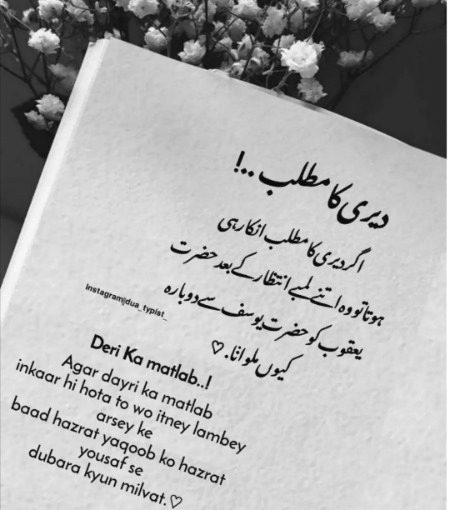 دیری کا مطلب ..!
اگر دیری کا مطلب انکار ہی
ہوتا تو وہ اتنے لمبے انتظار کے بعد حضرت
یعقوب کو حضرت یوسف سے دوبارہ
کیوں ملواتا. ♡
instagram|dua_typist_
Deri Ka matlab..!
Agar dayri ka matlab
inkaar hi hota to wo itney lambey
arsey ke
baad hazrat yaqoob ko hazrat
yousaf se
dubara kyun milvat.♡